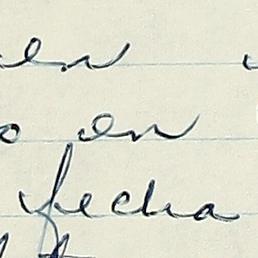 en
o en
fecha